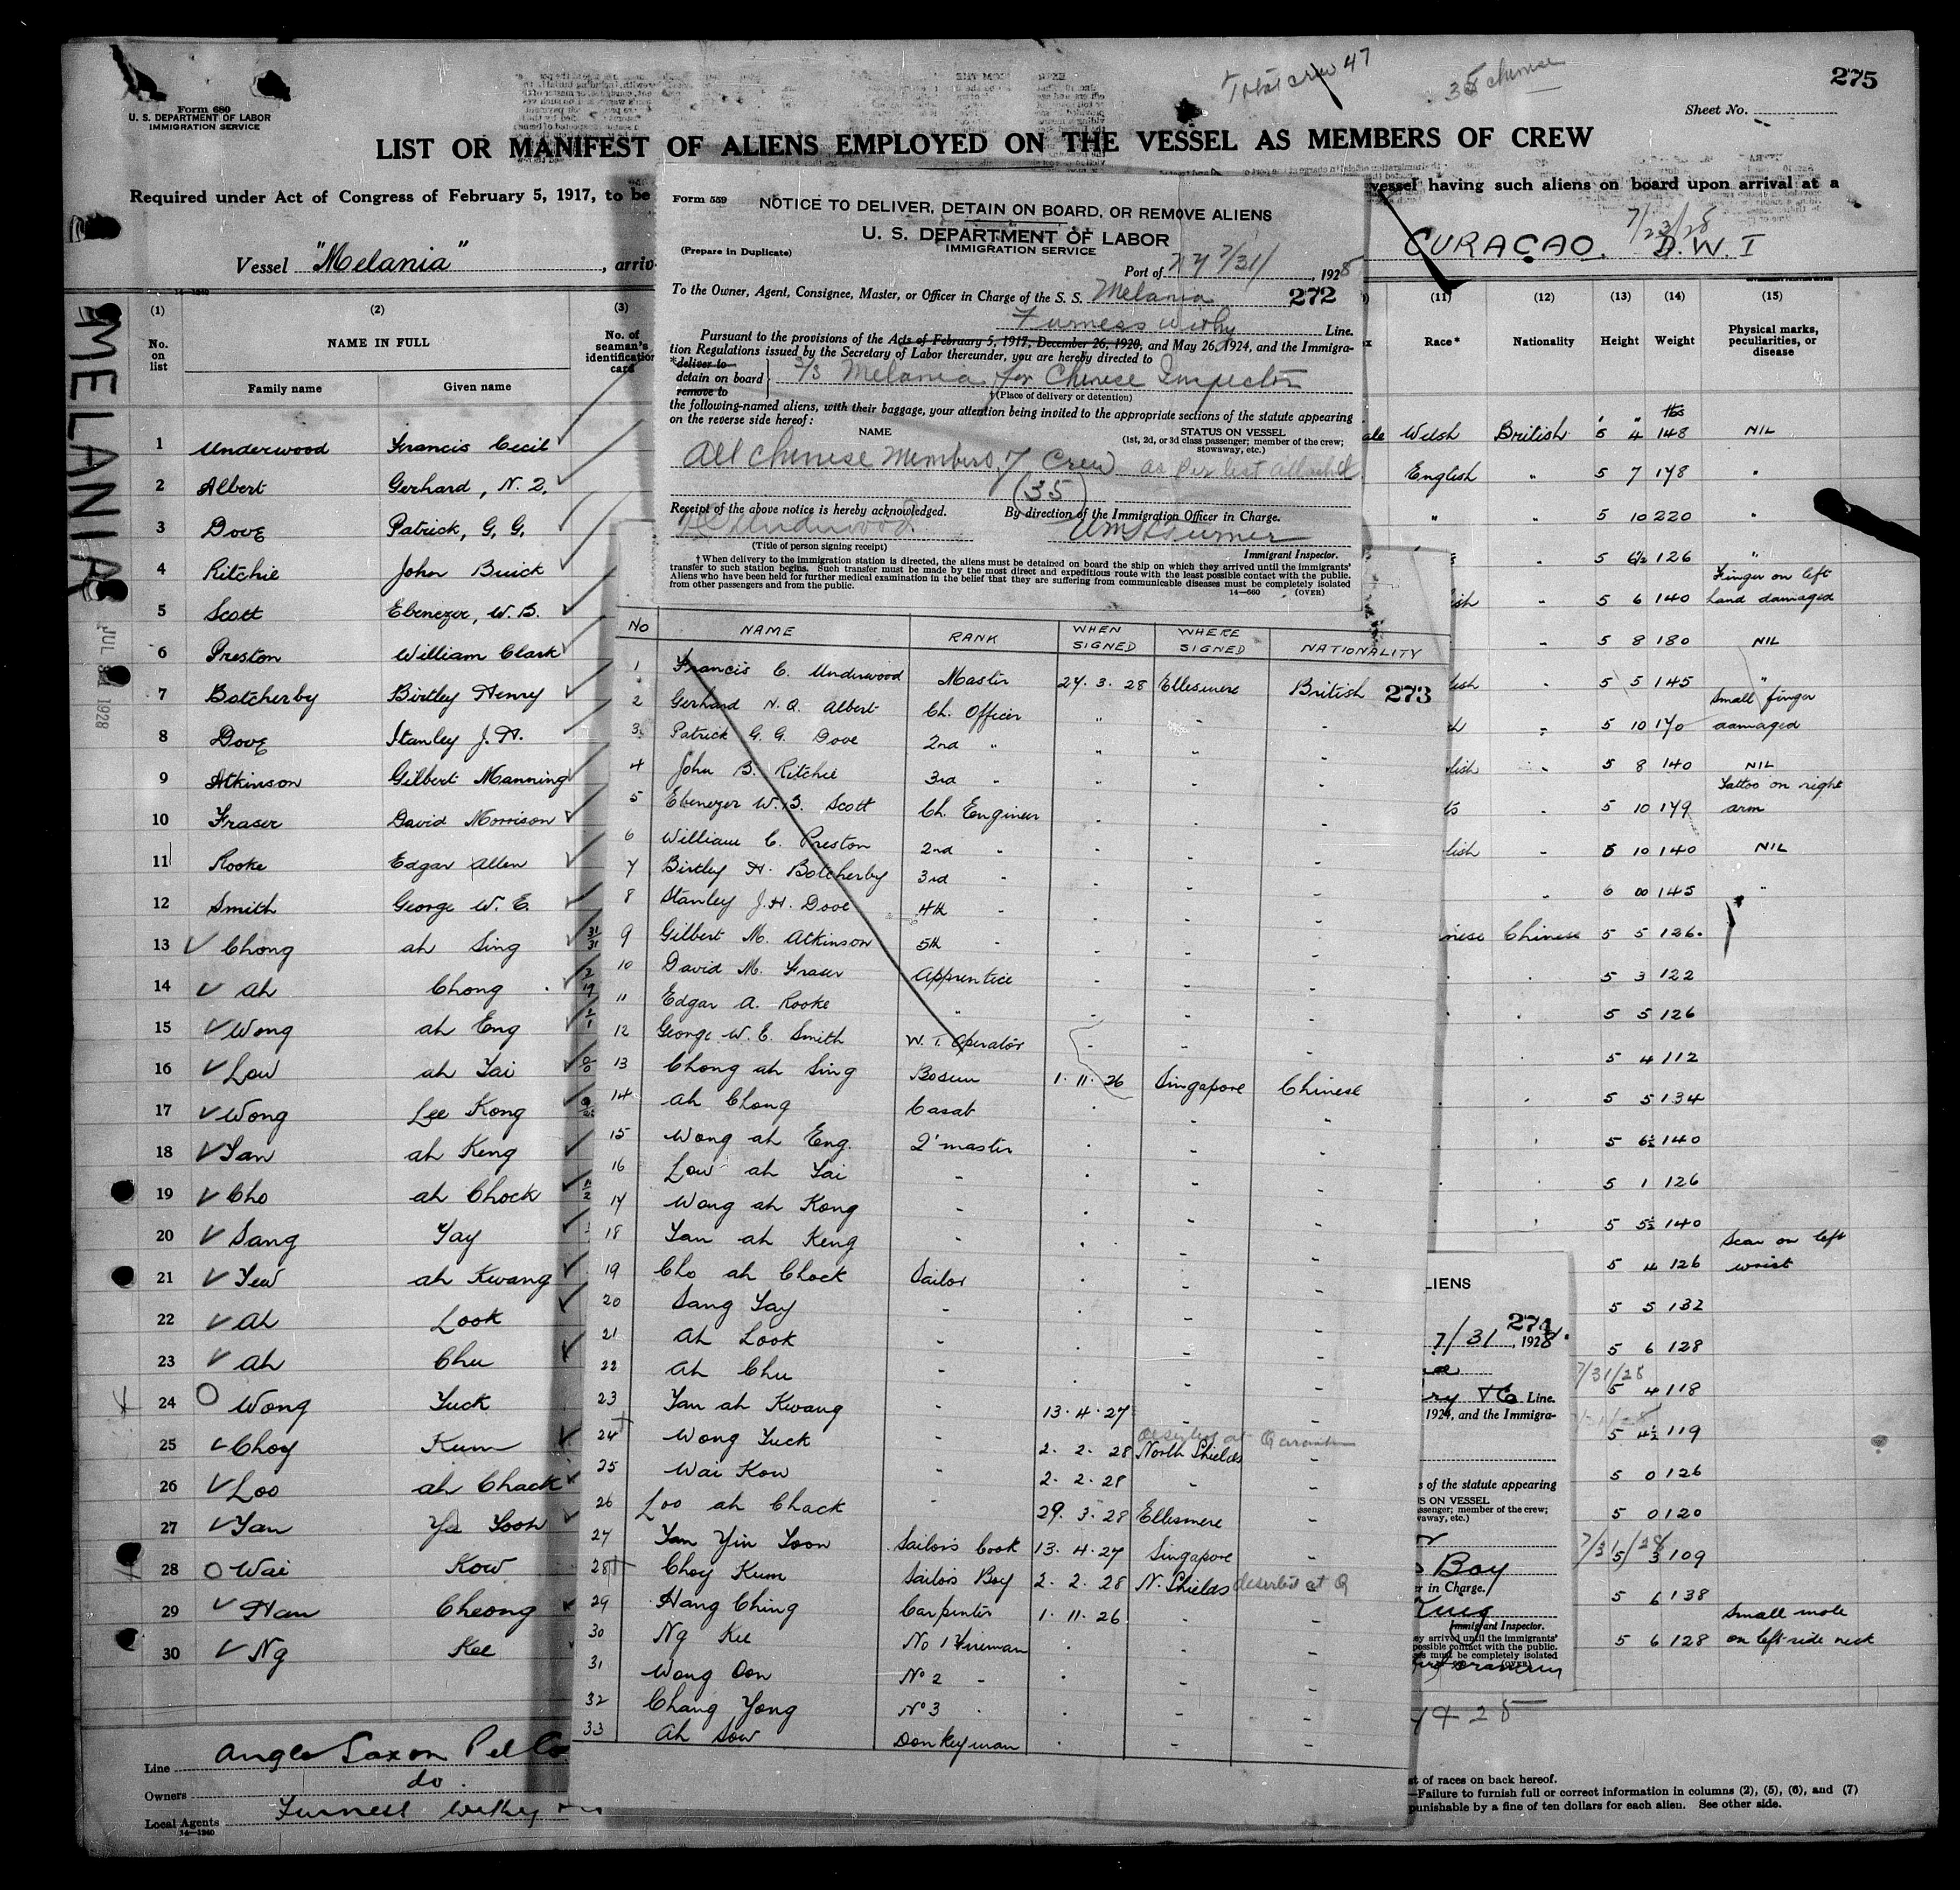 Total crew 47
35 chinese
275
Form 680
U. S. DEPARTMENT OF LABOR
IMMIGRATION SERVICE
Sheet No.
LIST OR MANIFEST OF ALIENS EMPLOYED ON THE VESSEL AS MEMBERS OF CREW
Required under Act of Congress of February 5, 1917, to be
vessel having such aliens on board upon arrival at a
7/23/28
Vessel "Melania", arriv
CURAÇAO. D.W.I
MELANIA
JUL 31 1928
Form 559
NOTICE TO DELIVER, DETAIN ON BOARD, OR REMOVE ALIENS
U. S. DEPARTMENT OF LABOR
IMMIGRATION SERVICE
(Prepare in Duplicate)
Port of NY 7/31/, 1928
To the Owner, Agent, Consignee, Master, or Officer in Charge of the S. S. Melania 272
Furness Withy Line.
Pursuant to the provisions of the Acts of February 5, 1917, December 26, 1920, and May 26, 1924, and the Immigra-
tion Regulations issued by the Secretary of Labor thereunder, you are hereby directed to
*deliver to
detain on board
remove to
S/S Melania for Chinese Inspector
†(Place of delivery or detention)
the following-named aliens, with their baggage, your attention being invited to the appropriate sections of the statute appearing
on the reverse side hereof:
NAME
STATUS ON VESSEL
(1st, 2d, or 3d class passenger; member of the crew;
stowaway, etc.)
All Chinese Members of Crew as per list attached
(35)
Receipt of the above notice is hereby acknowledged.
By direction of the Immigration Officer in Charge.
Underwood
Turner
(Title of person signing receipt)
Immigrant Inspector.
†When delivery to the immigration station is directed, the aliens must be detained on board the ship on which they arrived until the immigrants'
transfer to such station begins. Such transfer must be made by the most direct and expeditious route with the least possible contact with the public.
Aliens who have been held for further medical examination in the belief that they are suffering from communicable diseases must be completely isolated
from other passengers and from the public.
14—560 (OVER)
14—1240
(1) (2) (3)
No. on list
NAME IN FULL
No. of seaman's identification card
Family name Given name
1 Underwood Francis Cecil
2 Albert Gerhard, N. Q.
3 Dove Patrick, G. G.
4 Ritchie John Buick
5 Scott Ebenezer, W. B.
6 Preston William Clark
7 Botcherby Birtley Henry
8 Dove Stanley J. H.
9 Atkinson Gilbert Manning
10 Fraser David Morrison
11 Rooke Edgar Allen
12 Smith George W. E.
13 Chong ah Sing
14 Ah Chong
15 Wong ah Eng
16 Low ah Tai
17 Wong Lee Kong
18 Tan ah Keng
19 Cho ah Chock
20 Sang Tay
21 Yew ah Kwang
22 Ah Look
23 Ah Chu
24 Wong Tuck
25 Choy Kum
26 Loo ah Chack
27 Tan
28 Wai Kow
29 Han Cheong
30 Ng Kee
Line Anglo Saxon Pet Co
Owners do.
Local Agents Furness Withy
14—1240
No NAME RANK WHEN SIGNED WHERE SIGNED NATIONALITY
1 Francis C. Underwood Master 27. 3. 28 Ellesmere British 273
2 Gerhard N. Q. Albert Ch. Officer " - -
3 Patrick G. G. Dove 2nd " " - -
4 John B. Ritchie 3rd " " - -
5 Ebenezer W. B. Scott Ch. Engineer - - -
6 William C. Preston 2nd " - - -
7 Birtley H. Botcherby 3rd " - - -
8 Stanley J. H. Dove 4th - - - -
9 Gilbert M. Atkinson 5th " - - -
10 David M. Fraser Apprentice - - -
11 Edgar A. Rooke " - - -
12 George W. E. Smith W. T. Operator - - -
13 Chong ah Sing Bosun 1. 11. 26 Singapore Chinese
14 Ah Chong Casab . - -
15 Wong ah Eng. Q'master . - -
16 Low ah Tai - . - -
17 Wong ah Kong - . - -
18 Tan ah Keng - . - -
19 Cho ah Chock Sailor . - -
20 Sang Tay - . - -
21 Ah Look - . - -
22 Ah Chu - . - -
23 Tan ah Kwang - 13. 4. 27 - -
deserted at
24 Wong Tuck - 2. 2. 28 North Shields -
25 Wai Kow - 2. 2. 28 - -
26 Loo ah Chack - 29. 3. 28 Ellesmere -
27 Tan Yin Soon Sailors Cook 13. 4. 27 Singapore -
28 Choy Kum Sailors Boy 2. 2. 28 N. Shields deserted at Q
29 Hang Ching Carpenter 1. 11. 26 - -
30 Ng Kee No 1 Fireman . - -
31 Wong Oon No 2 - . - -
32 Chang Yong No 3 . . - -
33 Ah Sow Donkeyman . - -
(11) (12) (13) (14) (15)
Race* Nationality Height Weight Physical marks, peculiarities, or disease
lbs
ale Welsh British 5 4 148 NIL
English " 5 7 178 "
" " 5 10 220 "
" 5 6½ 126 "
Finger on left
ish " 5 6 140 hand damaged
" 5 8 180 NIL
lish 5 5 145 "
Small finger
" 5 10 170 damaged
lish " 5 8 140 NIL
Tattoo on right
" 5 10 179 arm
lish - 5 10 140 NIL
" 6 00 145 "
nese Chinese 5 5 126.
5 3 122
5 5 126
5 4 112
5 5 134
5 6½ 140
5 1 126
5 5½ 140
Scar on left
5 4 126 wrist
5 5 132
5 6 128
7/31/28
5 4 118
5 4½ 119
5 0 126
5 0 120
7/31/28
5 3 109
5 6 138
Small mole
5 6 128 on left side neck
LIENS
274
7/31, 1928.
ry & Co Line.
1924, and the Immigra-
s of the statute appearing
US ON VESSEL
ssenger; member of the crew;
waway, etc.)
Boy
er in Charge.
King
Immigrant Inspector.
ey arrived until the immigrants'
possible contact with the public.
es must be completely isolated
(OVER)
st of races on back hereof.
—Failure to furnish full or correct information in columns (2), (5), (6), and (7)
punishable by a fine of ten dollars for each alien. See other side.